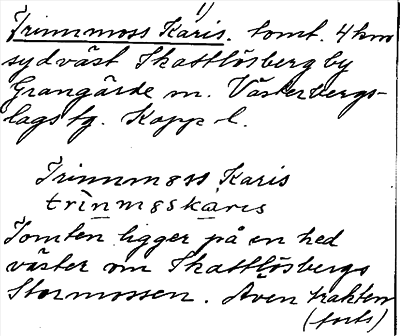 1)
Trinnmoss Karis. tomt. 4 km
sydväst Skattlösberg by
Grangärde sn. Västerbergs-
lags tg. Kopp. l.
Trinnmoss Karis
trìnmøskàris
Tomten ligger på en hed
väster om Skattlösbergs
Stormossen. Även trakten
(forts)